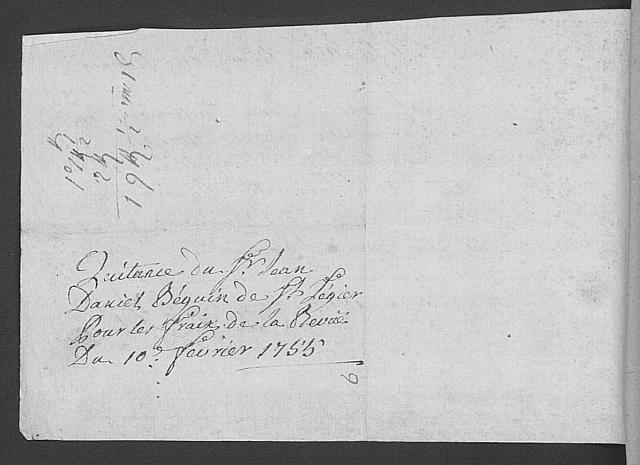 Quitance du Sr. Jean
Daniel Béguin de St. Légier
Pour les fraix de la Revüe
Du 10e. fevrier 1755
6